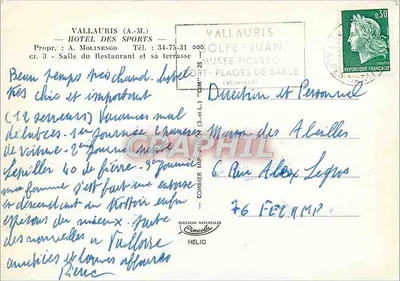 VALLAURIS (A.-M.)
— HOTEL DES SPORTS —
Propr. : A. MOLINENGO Tél. : 34-75-31
ci. 3 - Salle du Restaurant et sa terrasse
VALLAURIS
GOLFE-JUAN
MUSÉE PICASSO
PORT-PLAGES DE SABLE
0,30
REPUBLIQUE FRANÇAISE
Beau temps pas chaud. hotel
très chic et important
(12 serveurs) Vacances mal
débutées. 1ère journée
de voiture. 2ème journée
40 de fièvre. 3ème journée
ma femme s'est fait une entorse
en descendant un trottoir enfin
espérons du mieux.
des nouvelles à Valloire
amitiés et bonnes affaires
Pierre
Direction et Personnel
Maison des Abeilles
6 Rue Alex Legros
76 FECAMP
COMBIER IMP. MACON (S.-et-L.) "CIM"
CARPHIL
COULEURS NATURELLES
Cimcolor
HÉLIO